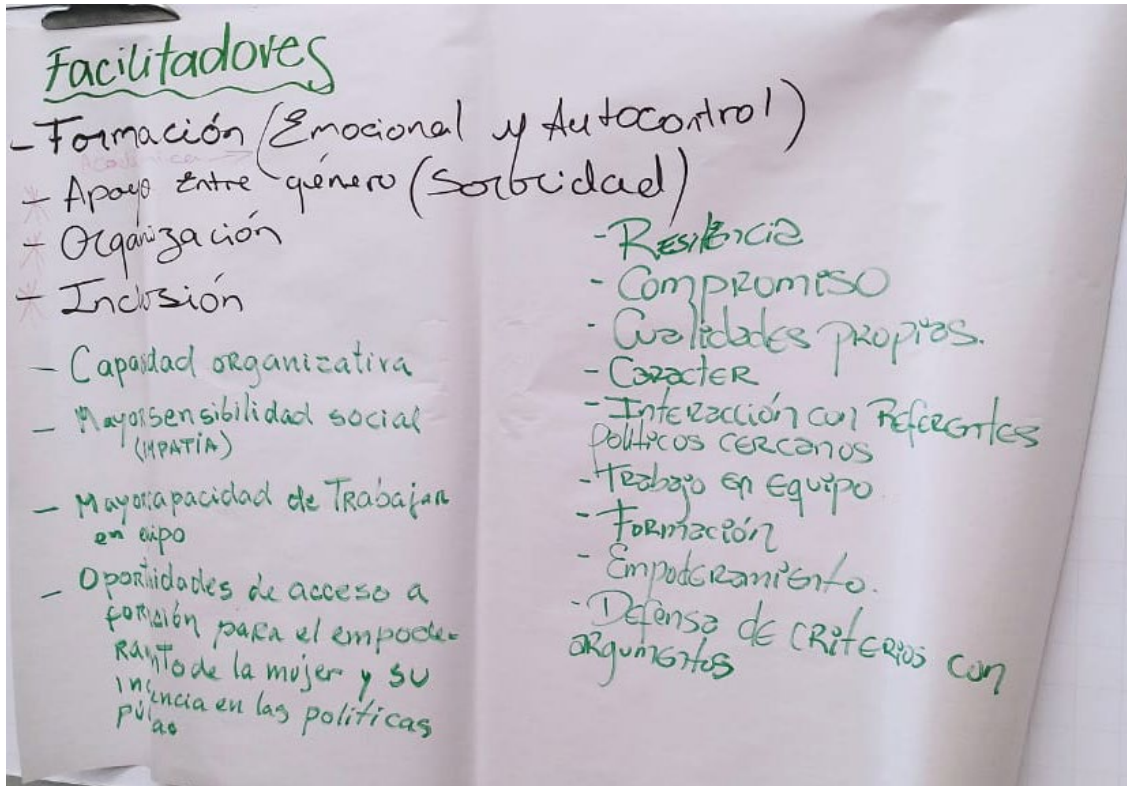 Facilitadores
- Formación (Emocional y Autocontrol)
Académica
* - Apoyo Entre género (Sororidad)
* - Organización
* - Inclusión
- Capacidad organizativa
- Mayor sensibilidad social
(IMPATÍA)
- Mayor capacidad de Trabajar
en
- Oportunidades de acceso a
para el empode-
de la mujer y su
en las políticas
- Resiliencia
- Compromiso
- Cualidades propias.
- Caracter
- Interacción con Referentes
políticos cercanos
- Trabajo en Equipo
- Formación
- Empoderamiento.
- Defensa de criterios con
argumentos